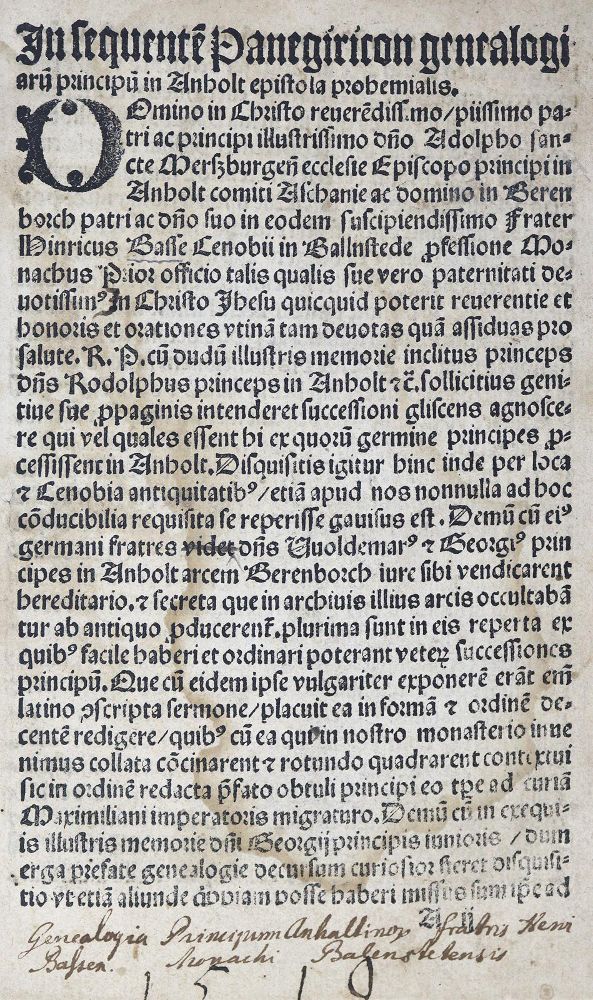 In sequentē Panegiricon genealogi
arū principū in Anholt epistola prohemialis.
DOmino in Christo reuerēdiss.mo/piissimo pa⸗
tri ac principi illustrissimo dño Adolpho san⸗
cte Merszburgeñ ecclesie Episcopo principi in
Anholt comiti Aschanie ac domino in Beren
borch patri ac dño suo in eodem suscipiendissimo Frater
Hinricus Basse Cenobii in Ballnstede ꝓfessione Mo⸗
nachus Prior officio talis qualis sue vero paternitati de⸗
uotissimꝰ In Christo Jhesu quicquid poterit reuerentie et
honoris et orationes vtinā tam deuotas quā assiduas pro
salute. R. P. cū dudū illustris memorie inclitus princeps
dñs Rodolphus princeps in Anholt ⁊c̄. sollicitius geni⸗
tiue sue ꝓpaginis intenderet successioni gliscens agnosce⸗
re qui vel quales essent hi ex quorū germine principes ꝓ⸗
cessissent in Anholt. Disquisitis igitur hinc inde per loca
⁊ Cenobia antiquitatibꝰ/etiā apud nos nonnulla ad hoc
cōducibilia requisita se reperisse gauisus est. Demū cū eiꝰ
germani fratres videꝫ dñs Uuoldemarꝰ ⁊ Georgiꝰ prin
cipes in Anholt arcem Berenborch iure sibi vendicarent
hereditario. ⁊ secreta que in archiuis illius arcis occultabā
tur ab antiquo ꝓducerent᷑. plurima sunt in eis reperta ex
quibꝰ facile haberi et ordinari poterant veteꝝ successiones
principū. Que cū eidem ipse vulgariter exponerē erāt em̄
latino ꝯscripta sermone/placuit ea in formā ⁊ ordinē de⸗
centē redigere/quibꝰ cū ea qui in nostro monasterio inue
nimus collata cōcinarent ⁊ rotundo quadrarent contextui
sic in ordinē redacta p̄fato obtuli principi eo tp̄e ad curiā
Maximiliani imperatoris migraturo. Demū cū in exequi⸗
is illustris memorie dñi Georgij principis iunioris / dum
erga prefate genealogie decursum curiosior fieret disquisi⸗
tio vt etiā aliunde posse haberi missus sum ip̄e ad
A ij
Genealogia Principum Anhaltinor fratris Henri
Bassen Monachi Balenstetensis
1 5 1 0